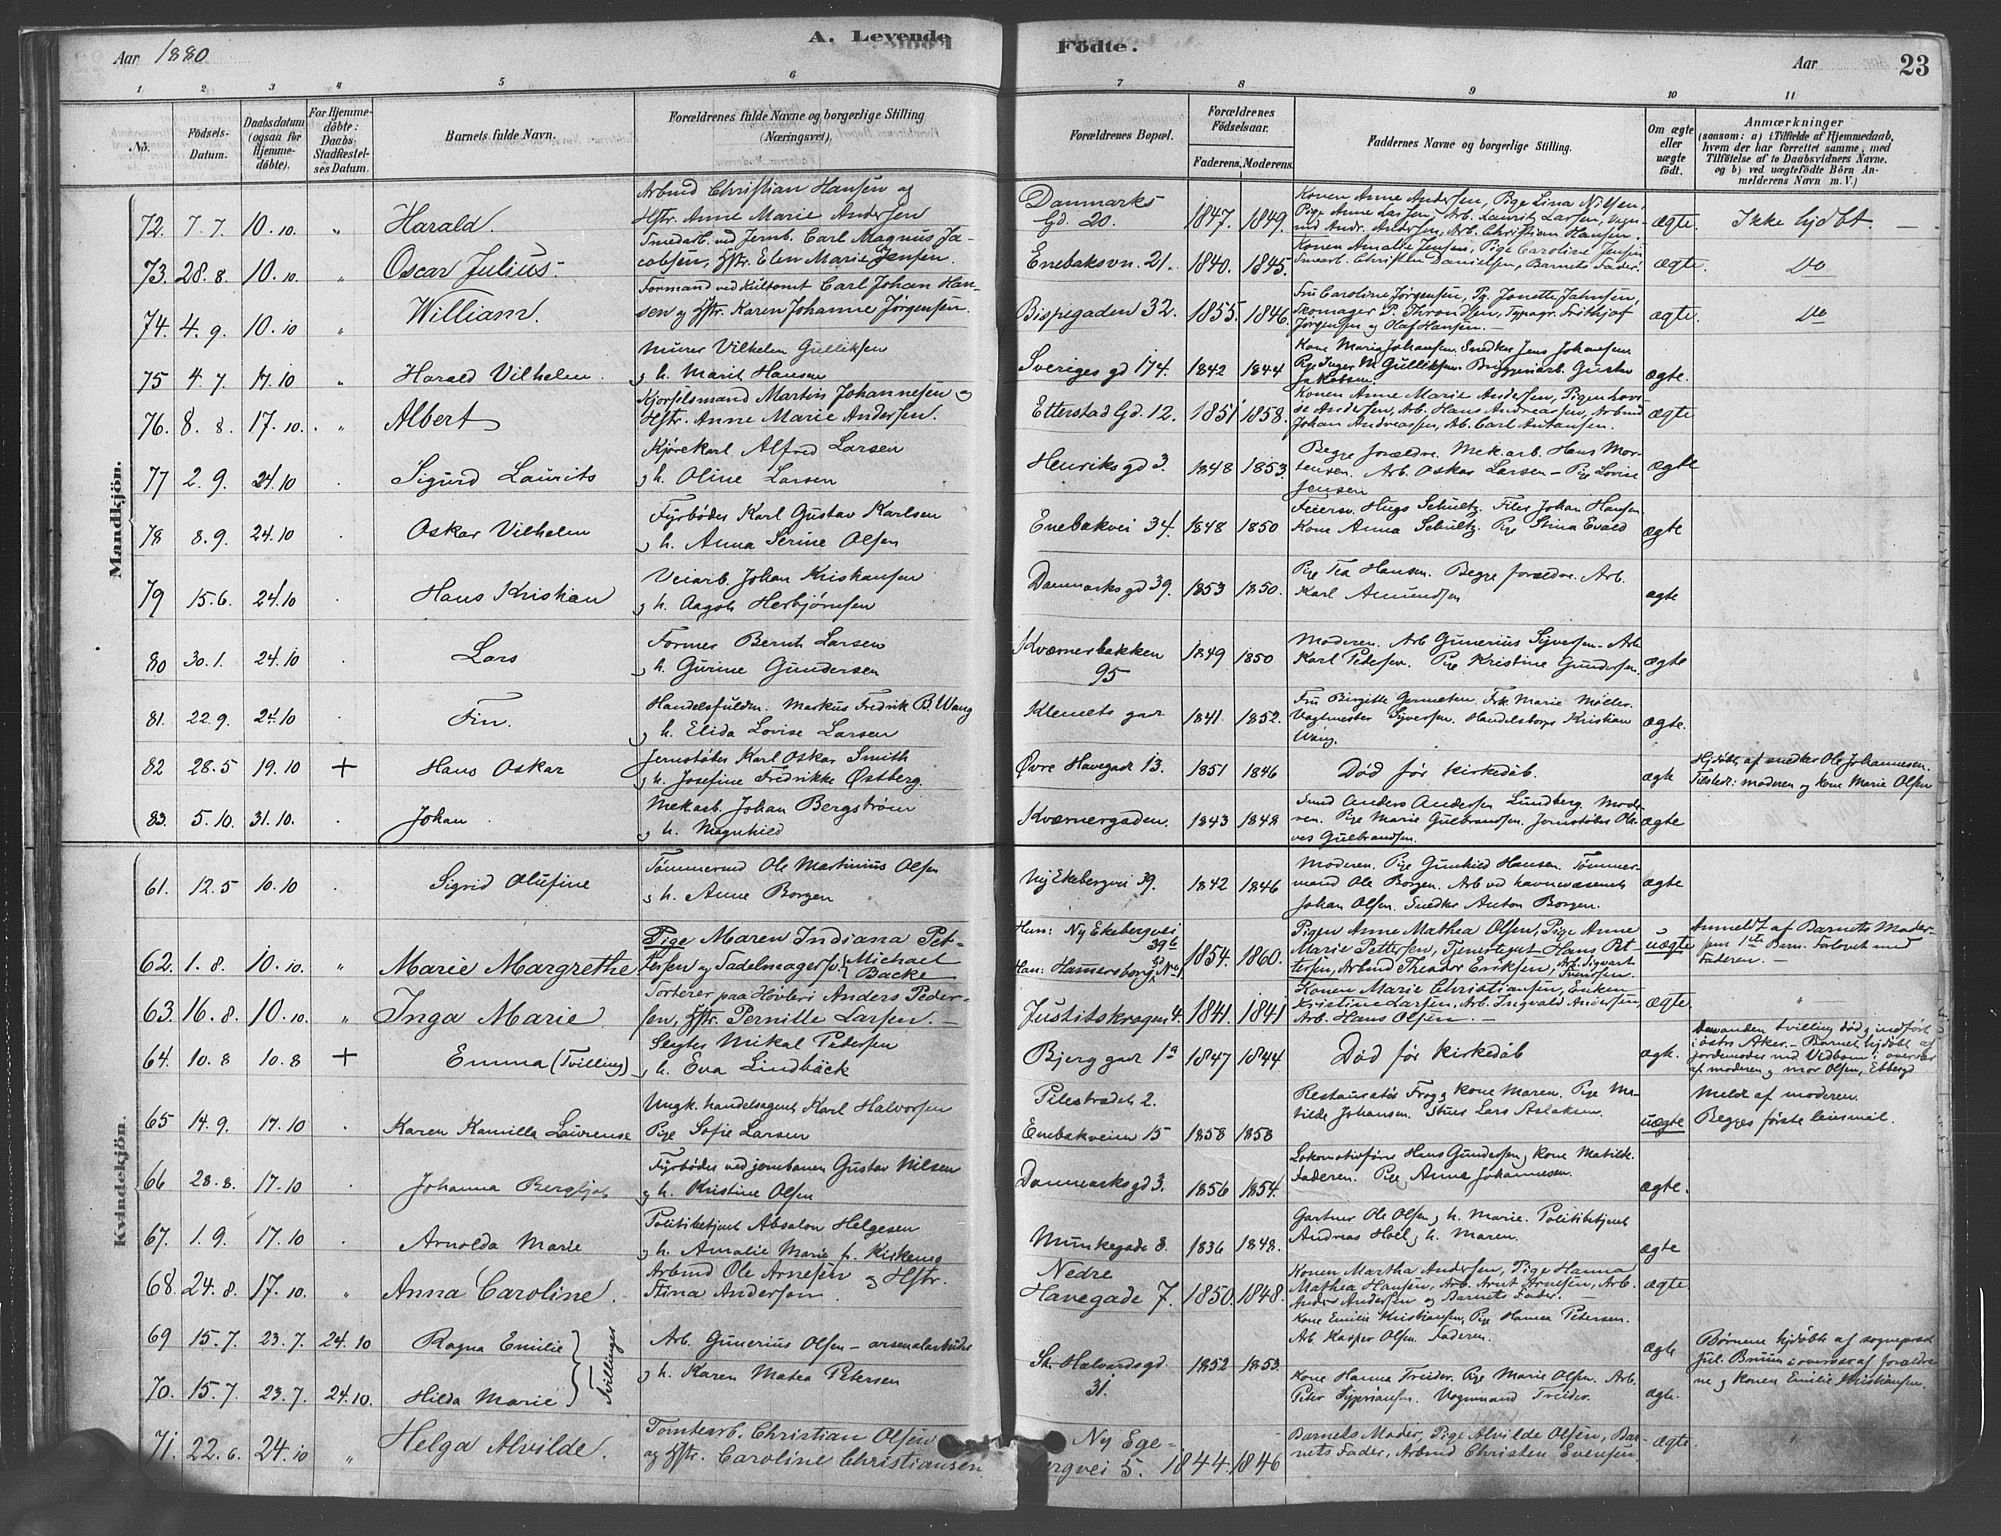 Aar 1880
A. Levende
Födte.
Aar
23
1 2 3 4 5 6 7 8 9 10 11
No.
Födsels-Datum.
Daabsdatum (ogsaa för Hjemmedöbte).
For Hjemmedöbte: Daabs Stadfæstelses Datum.
Barnets fulde Navn.
Forældrenes fulde Navne og borgerlige Stilling (Næringsvei).
Forældrenes Bopæl.
Forældrenes Födselsaar.
Faderens. Moderens.
Faddernes Navne og borgerlige Stilling.
Om ægte eller uægte födt.
Anmærkninger
(saasom: a) i Tilfælde af Hjemmedaab, hvem der har forrettet samme, med Tilföielse af to Daabsvidners Navne, og b) ved uægtefödte Börn Anmelderens Navn m. V.)
Mandkjön.
72. 7.7. 10.10. " Harald. Arbmd Christian Hansen og Hstr. Anne Marie Andersen Danmarks Gd. 20. 1847. 1849. Konen Anne Andersen, Pige Lina Nilsen, Pige Anne Larsen, Arb. Lauritz Larsen, Andr. Andersen, Arb. Christian Hansen. ægte. Ikke hjdbt.
73. 28.8. 10.10. " Oscar Julius. Smedarb. ved Jernb. Carl Magnus Jacobsen, Hstr. Elen Marie Jensen. Enebaksvn. 21. 1840. 1845. Konen Amalie Jensen, Pige Caroline Jensen, Smearb. Christen Danielsen, Barnets Fader. ægte. Do
74. 4.9. 10.10 " William. Formand ved Kulkomt Carl Johan Hansen og Hstr. Karen Johanne Jørgensen. Bispegaden 32. 1855. 1846. Fru Caroline Jørgensen, Pg. Jonette Jahnsen, Skomager P. Throndsen, Typogr. Frithjof Jørgensen og Olaf Hansen. ægte. Do
75 4.7. 17.10 " Harald Vilhelm. Murer Vilhelm Gulliksen og h. Marit Hansen Sveriges gd 174. 1842 1844 Kone Maria Johansen. Snedker Jens Johansen Pige Inger M. Gulliksen. Bryggeriarb. Gustav Jakobsen. ægte.
76. 8.8. 17.10. " Albert Kjørselsmand Martin Johannesen og Hstr. Anne Marie Andersen. Etterstad Gd. 12. 1851 1858. Konen Anne Marie Andersen, Pigen Lovise Andersen, Arb. Hans Andreassen, Arbmd Johan Andreassen, Ab. Carl Antonsen. ægte
77 2.9. 24.10 . Sigurd Laurits Kjørekarl Alfred Larsen og h. Oline Larsen Henriks gd 3. 1848 1853. Begge forældre. Mek. arb. Hans Mortensen. Arb. Oskar Larsen - Pige Lovise Jensen ægte
78 8.9. 24.10 . Oskar Vilhelm Fyrbøder Karl Gustav Karlsen og h. Anna Serine Olsen Enebakvei 34. 1848 1850 Feiersv. Hugo Schultz. Filer Johan Hansen Kone Anna Schultz. Pige Stina Evald ægte
79 15.6. 24.10 . Hans Kristian Veiarb. Johan Kristiansen og h. Aagot Herbjørnsen Danmarks gd 39. 1853 1850. Pige Tea Hansen. Begge forældre. Arb. Karl Amundsen ægte
80 30.1. 24.10 . Lars Former Bernt Larsen og h. Gurine Gundersen Kværnerbakken 95 1849 1850 Moderen. Arb Gunerius Syversen. Arb. Karl Pedersen. Pige Kristine Gundersen. ægte
81. 22.9. 24.10 . Fin. Handelsfuldm. Markus Fredrik B. Wang og h. Elida Lovise Larsen Klemets gad 1841. 1852. Fru Birgitte Germeten. Frk. Marie Møller. Vagtmester Syversen. Handelsborger Kristian Wang. ægte.
82 28.5 19.10 + Hans Oskar Jernstøber Karl Oskar Smith og h. Josefine Fredrikke Østberg. Øvre Havegade 13. 1851 1846 Død før kirkedåb. ægte Hjdøbt af snedker Ole Johannesen. Tilstede: moderen og kone Marie Olsen
83. 5.10. 31.10. . Johan. Mek arb. Johan Bergstrøm og h. Magnhild Kværnergaden. 1843 1848 Smed Anders Andersen Lundberg. Moderen. Pige Marie Gulbrandsen. Jernstøber Gulbrandsen. ægte
Kvindekjön.
61. 12.5 10.10 . Sigrid Olufine Tømmermd Ole Martinius Olsen og h. Anne Borgen Ny Ekebergvei 39. 1842 1846 Moderen. Pige Gunhild Hansen. Tømmermand Ole Borgen. Arb ved havnevæsenet Johan Olsen. Snedker Anton Borgen. ægte
62. 1.8. 10.10. " Marie Margrethe Pige Maren Indiana Pettersen og Sadelmagersv. Michael Backe Hun: Ny Ekebergvei 39b Han: Hammersborg 1854. 1860. Pigen Anne Mathea Olsen, Pige Anne Marie Pettersen, Tjenestegut Hans Pettersen, Arbmd Theodor Eriksen, Arb. Sigvart Svendsen. uægte Anmeldt af Barnets Moder. 1ste Barn. Forlovet med Faderen.
63. 16.8. 10.10. " Inga Marie. Sorterer paa Høvleri Anders Pedersen, Hstr. Pernille Larsen. Justitskrogen 4. 1841. 1841 Konen Marie Christiansen, Enken Kristine Larsen, Arb. Ingvald Andersen, Arb. Hans Olsen. ægte. "
64. 10.8 10.8 + Emma (Tvilling) Slagter Mikal Pedersen og h. Eva Lindbäck Bjerg gad 1a 1847 1844 Død før kirkedåb ægte. Den anden tvilling død, indført i østre Aker. - Barnet hjdøbt af jordemoder md Vidbom i overvær af moderen og mor Olsen, Ebbesgd
65 14.9. 17.10 . Karen Kamilla Laurense Ungk. handelsagent Karl Halvorsen Pige Sofie Larsen Pilestrædet 2. Enebakveien 15 1858 1858 Restauratør Frog og kone Maren. Pige Matilde Johansen. Lars Aslaksen. uægte Meldt af moderen. Begges første leiermål.
66 28.8. 17.10 . Johanna Bergljot Fyrbøder ved jernbanen Gustav Nilsen og h. Kristine Olsen Danmarks gd 3. 1856 1854. Lokomotivfører Hans Gundersen og kone Matilde. Faderen. Pige Anne Johannesen. ægte.
67. 1.9. 17.10 . Arnolda Marie Politibetjent Absalon Helgesen og h. Amalie Marie f. Kirkeng Munkegade 8. 1836 1848. Gartner Ole Olsen og h. Marie. Politibetjent Andreas Hoel og h. Maren. ægte
68. 24.8. 17.10. " Anna Caroline. Arbmd Ole Arnesen og Hstr. Stina Anderson. Nedre Havegade 7. 1850. 1848. Konen Martha Andersen, Pige Hanna Mathea Hansen, Arb. Arnt Arnesen, Arb. Anders Andersen og Barnets Fader. ægte.
69 15.7. 23.7. 24.10 Ragna Emilie Arb. Gunerius Olsen - arsenalarbeider St. Halvards gd. 31. 1852 1853. Kone Emilie Kristiansen, Pige Hanna Petersen. Arb. Kasper Olsen. Faderen. ægte Børnene hjdøbte af sogneprest Jul. Bruun i overvær af forældrene og konen Emilie Kristiansen.
Tvillinger
70. 15.7. 23.7. 24.10. Hilda Marie og h. Karen Matea Petersen Kone Hanna Treider. Pige Marie Olsen. Arb. Peter Syperiansen. Vognmand Treider. ægte.
71. 22.6. 24.10 " Helga Alvilde. Tomtearb. Christian Olsen og Hstr. Caroline Christiansen. Ny Egebergvei 5. 1844. 1846 Barnets Moder, Pige Alvilde Olsen, Barnets Fader, Arbmd Christen Evensen. ægte